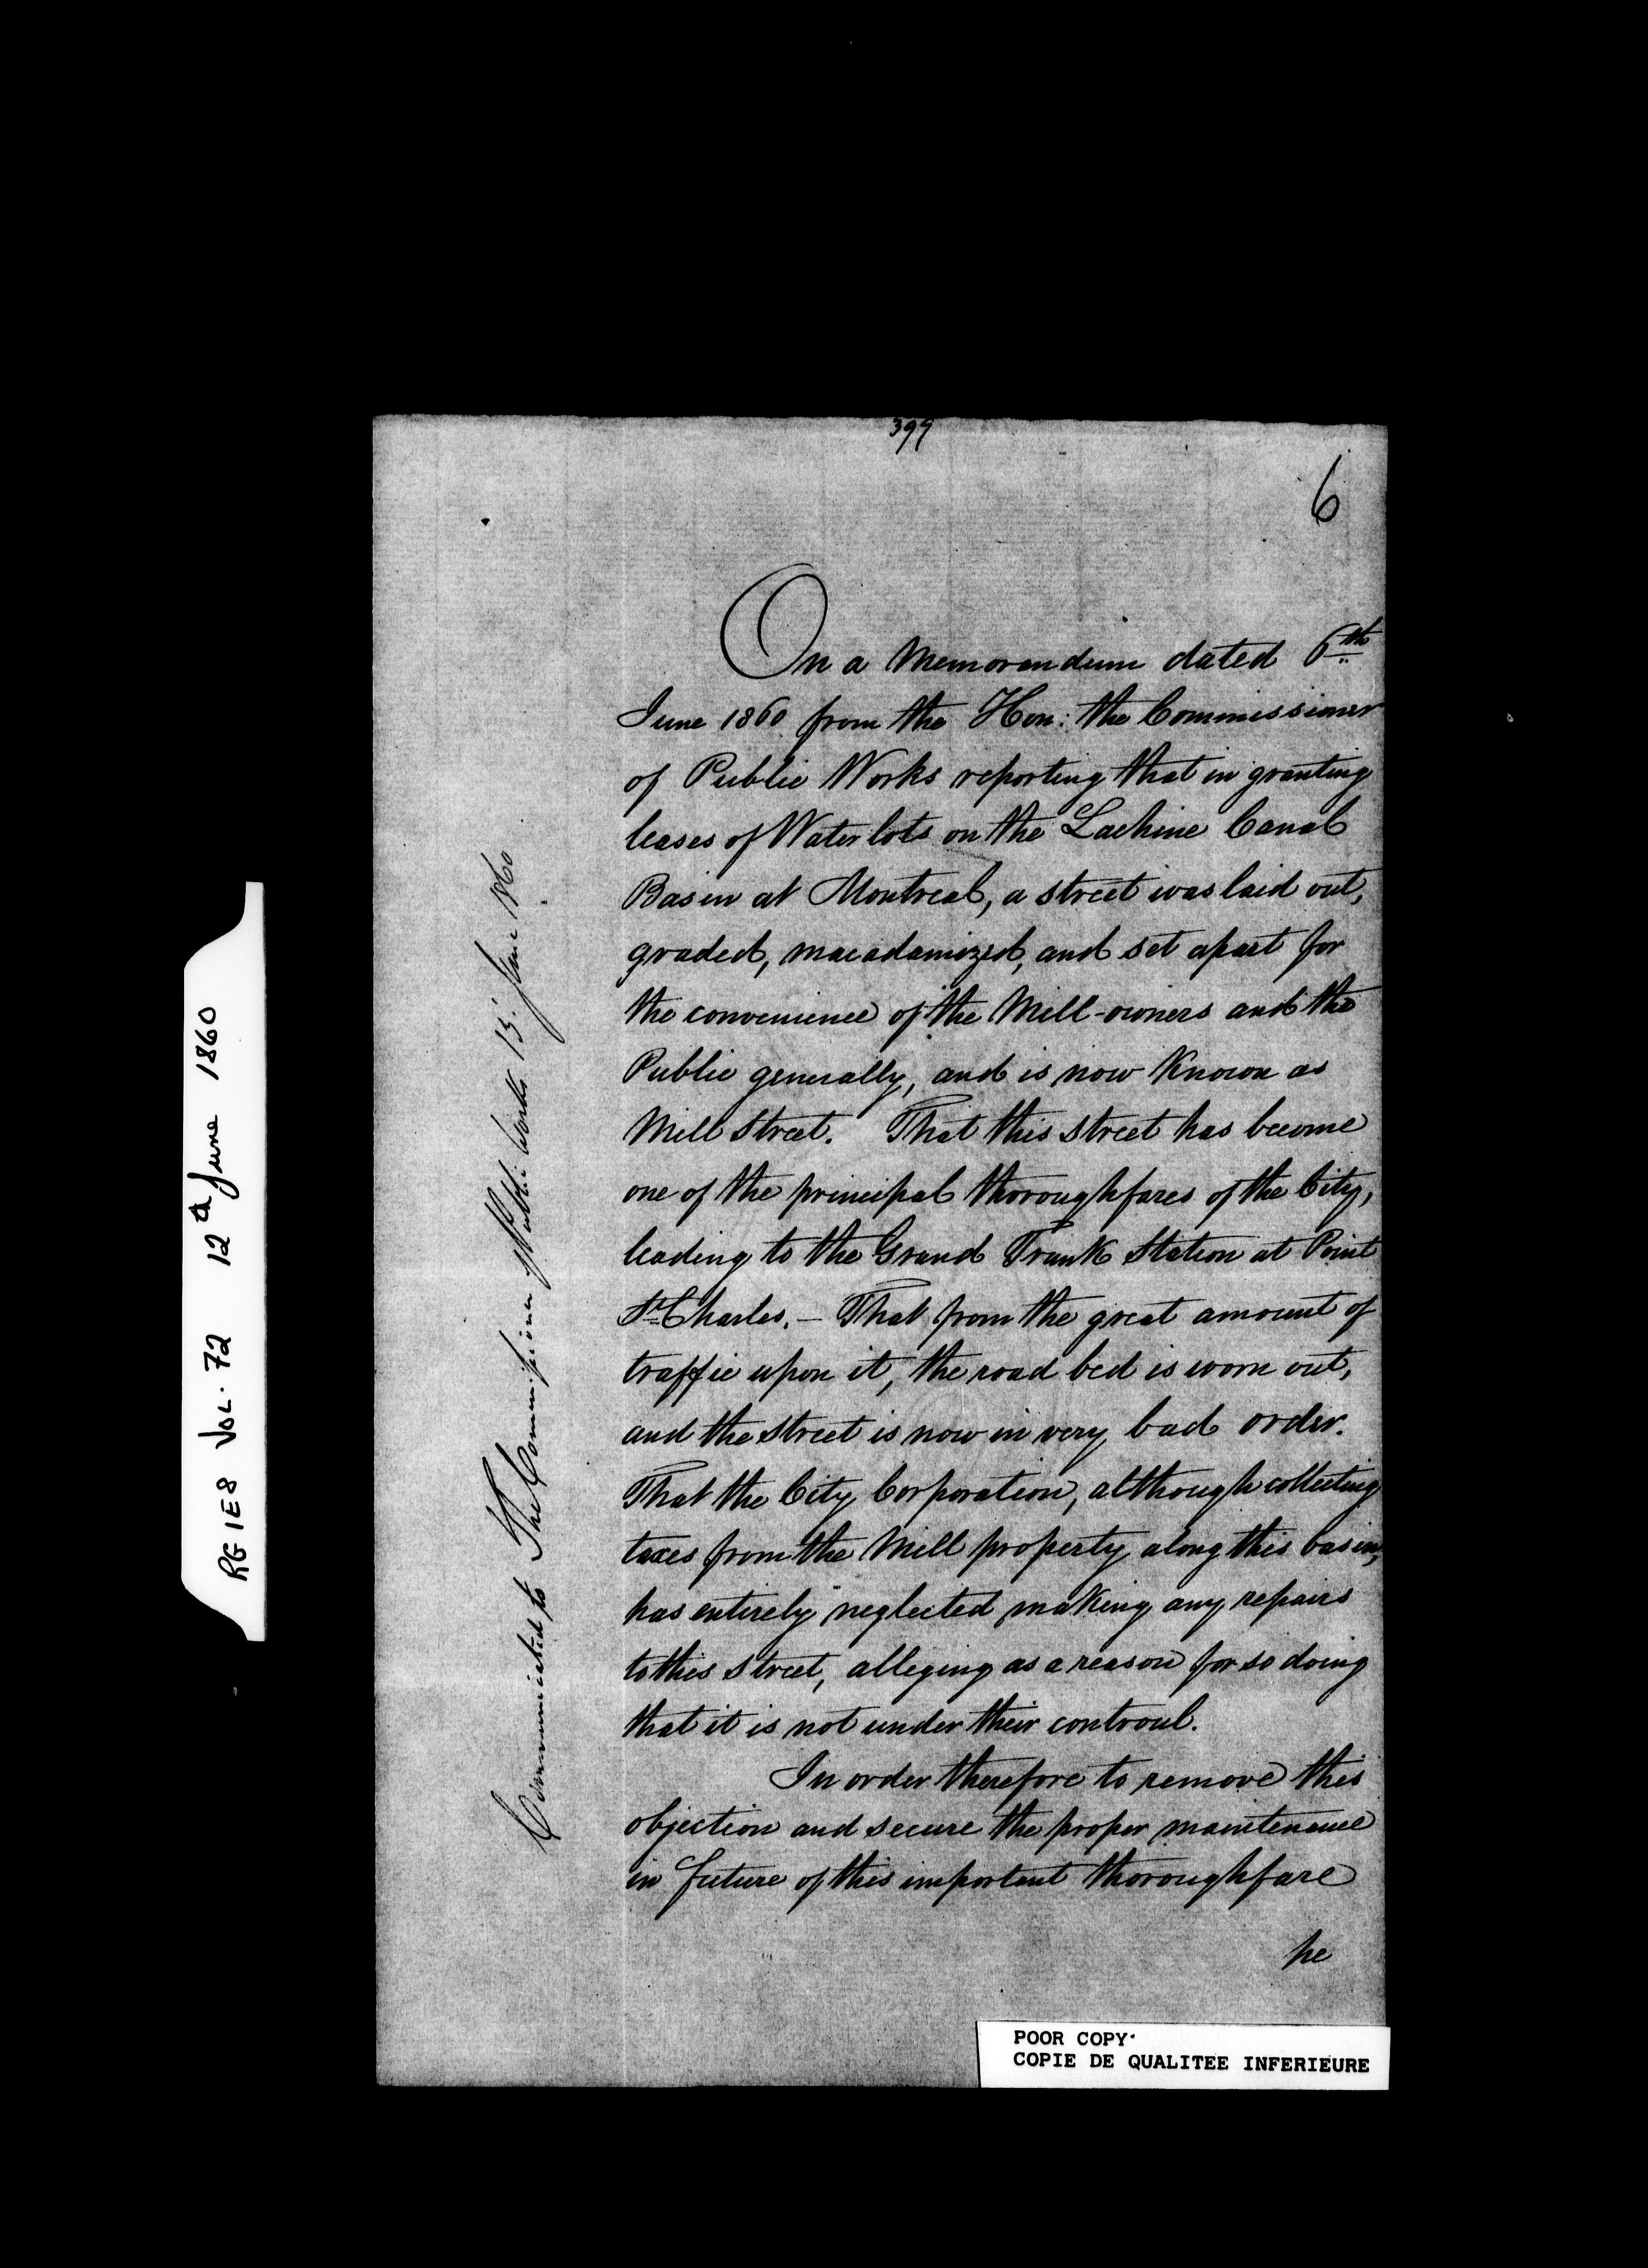 399
6
On a Memorandum dated 6th
June 1860 from the Hon: the Commissioner
of Public Works reporting that in granting
leases of Water lots on the Lachine Canal
Basin at Montreal, a street was laid out,
graded, macadamized, and set apart for
the convenience of the Mill-owners and the
Public generally, and is now Known as
Mill Street. That this street has become
one of the principal thoroughfares of the City,
leading to the Grand Trunk Station at Point
St Charles. – That from the great amount of
traffic upon it, the road bed is worn out,
and the street is now in very bad order.
That the City Corporation, although collecting
taxes from the Mill property along this basin,
has entirely neglected making any repairs
to this street, alleging as a reason for so doing
that it is not under their controul.
In order therefore to remove this
objection and secure the proper maintenance
in future of this important thoroughfare
he
Communicated to The Commissioner of Public Works 15. June 1860
RG 1E8 VOL. 72 12th June 1860
POOR COPY
COPIE DE QUALITEE INFERIEURE